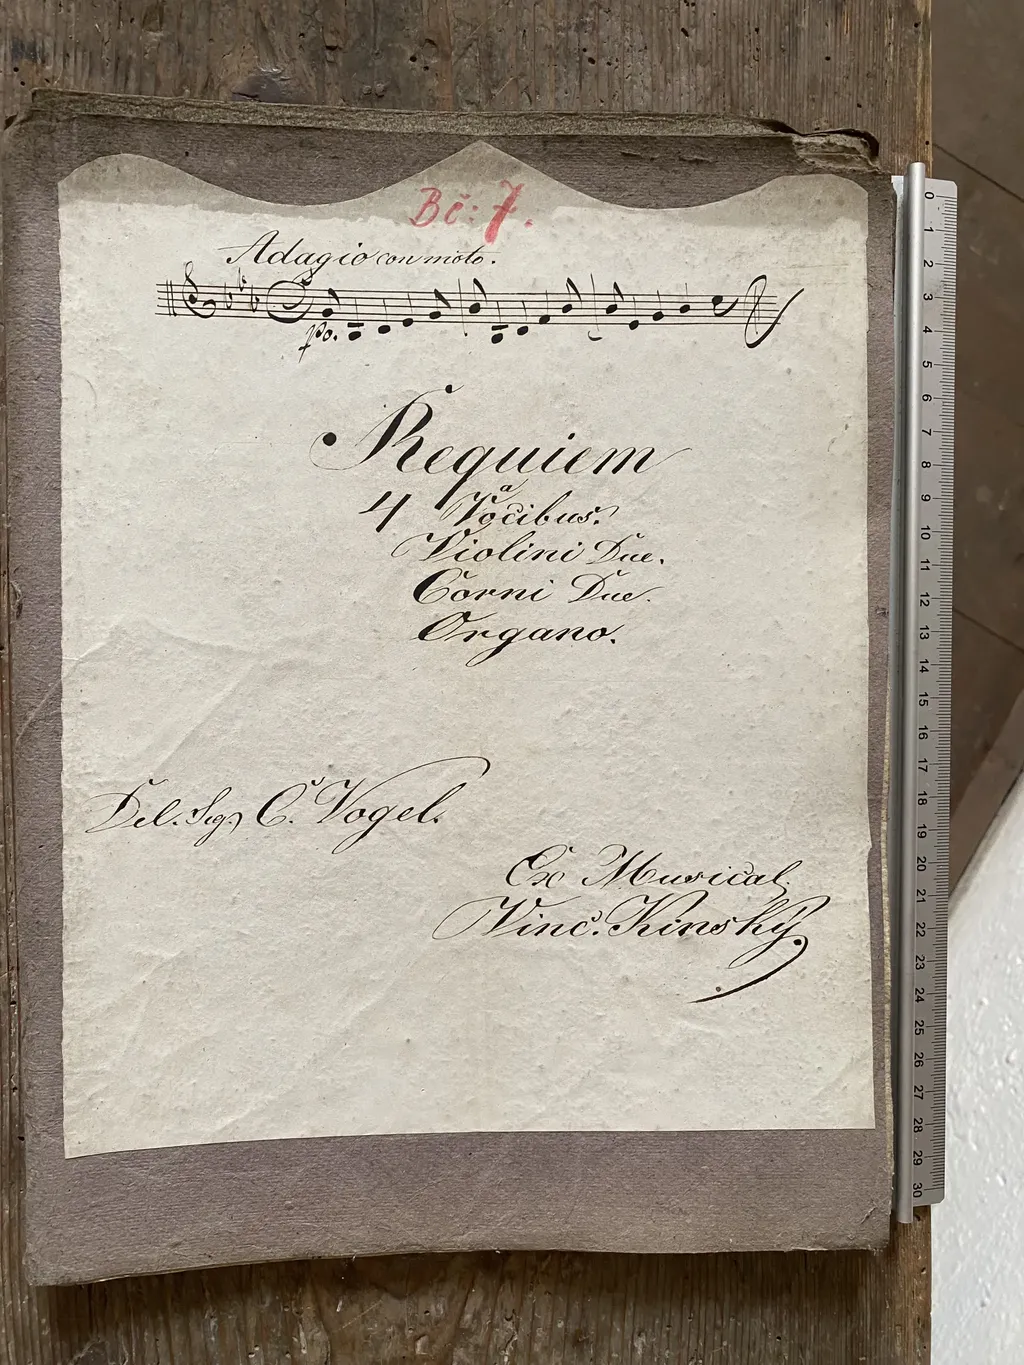 Bč: 7.
Adagio con moto.
po.
Requiem
a
4 Vocibus.
Violini Due.
Corni Due.
Organo.
Del. Sigr C. Vogel.
Ex Musical.
Vinc. Kinský
0 1 2 3 4 5 6 7 8 9 10 11 12 13 14 15 16 17 18 19 20 21 22 23 24 25 26 27 28 29 30